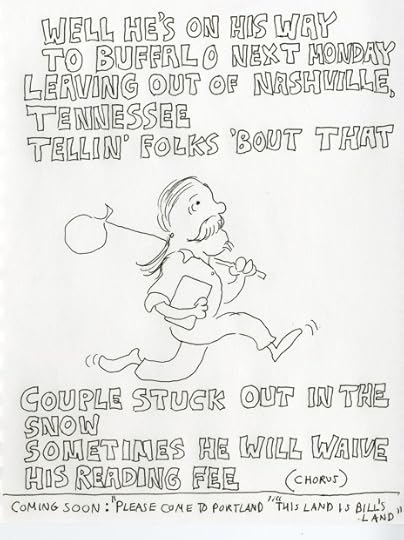 WELL HE'S ON HIS WAY
TO BUFFALO NEXT MONDAY
LEAVING OUT OF NASHVILLE,
TENNESSEE
TELLIN' FOLKS 'BOUT THAT
COUPLE STUCK OUT IN THE
SNOW
SOMETIMES HE WILL WAIVE
HIS READING FEE (CHORUS)
COMING SOON: "PLEASE COME TO PORTLAND" "THIS LAND IS BILL'S
LAND"